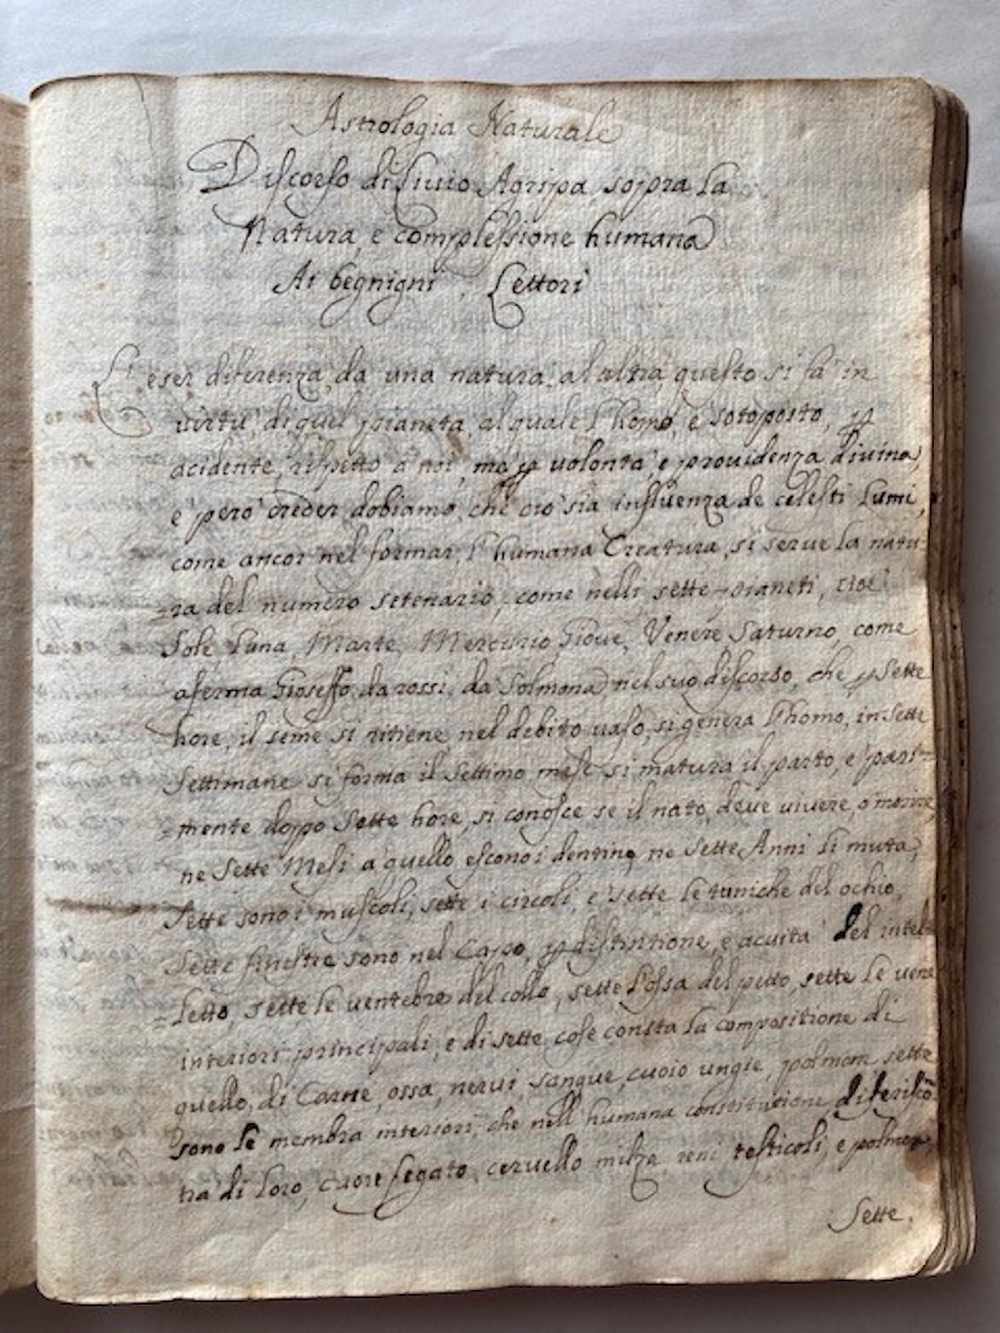 Astrologia Naturale
Discorso di Livio Agripa, sopra la
Natura, e complessione humana
Ai begnigni, Lettori
L' eser diferenza, da una natura, al altra questo si fa in
virtù, di quel pianeta, al quale l'homo, è sotoposto, ꝑ
acidente, rispetto a noi, ma ꝑ volontà e providenza divina,
e però creder dobiamo, che ciò sia influenza de celesti Lumi,
come ancor nel formar, l'humana Creatura, si serve la natu-
=ra del numero setenario, come nelli sette pianeti, cioè
Sole, Luna, Marte, Mercurio Giove, Venere Saturno, come
aferma Gioseffo, da rossi, da Solmona nel suo discorso, che ꝑ sette
hore, il seme si ritiene nel debito vaso, si genera l'homo, in sette
settimane si forma il settimo mese si matura il parto, e pari=
=mente doppo sette hore, si conosce se il nato, deve vivere, o morire,
ne sette Mesi a quello escono i dentino, ne sette Anni li muta,
sette sono i muscoli, sette i circoli, e sette le tuniche del ochio,
sette finestre sono nel Capo, ꝑ distintione, e acuità del intel=
=letto, sette le ventebre del collo, sette l'ossa del petto, sette le vene
interiori principali, e di sette cose consta la compositione di
quello, di Carne, ossa, nervi, sangue, cuoio ungie, sette
sono le membra interiori, che nell humana constitutione,
tra di loro, cuore fegato, cervello milza reni testicoli, e polmon,
Sette.